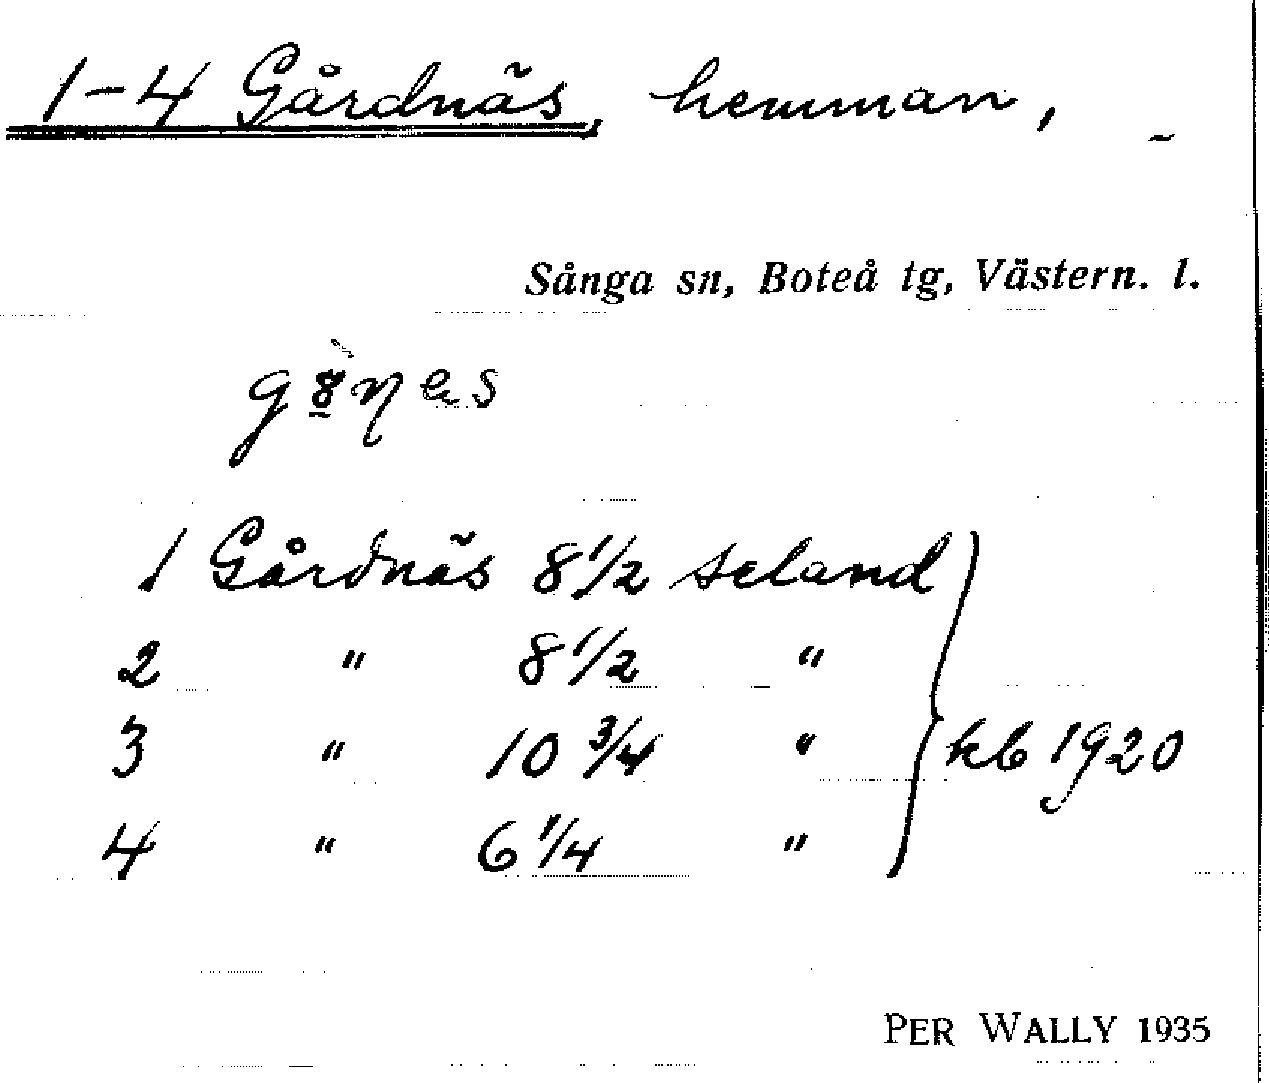 1-4 Gårdnäs, hemman,
Sånga sn, Boteå tg, Västern. l.
1 Gårdnäs 8 1/2 seland
2 " 8 1/2 "
3 " 10 3/4 "
4 " 6 1/4 "
kb 1920
PER WALLY 1935